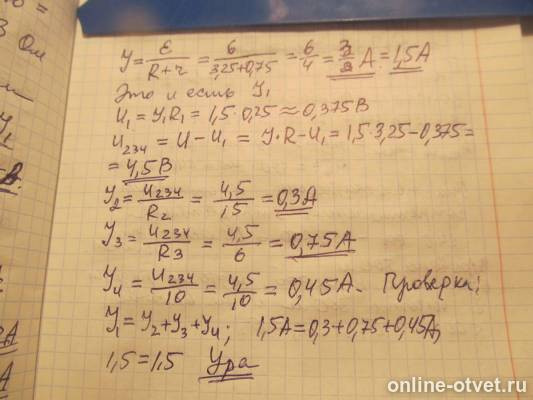 У = ε/(R+r) = 6/(3,25+0,75) = 6/4 = 3/2 А = 1,5А
Это и есть У₁
U₁ = У₁R₁ = 1,5 · 0,25 ≈ 0,375В
U₂₃₄ = U - U₁ = У·R - U₁ = 1,5·3,25 - 0,375 =
= 4,5В
У₂ = U₂₃₄/R₂ = 4,5/15 = 0,3А
У₃ = U₂₃₄/R3 = 4,5/6 = 0,75А
У₄ = U₂₃₄/10 = 4,5/10 = 0,45А. Проверка:
У₁ = У₂+У₃+У₄; 1,5А = 0,3+0,75+0,45А
1,5 = 1,5 Ура
Ом
online-otvet.ru